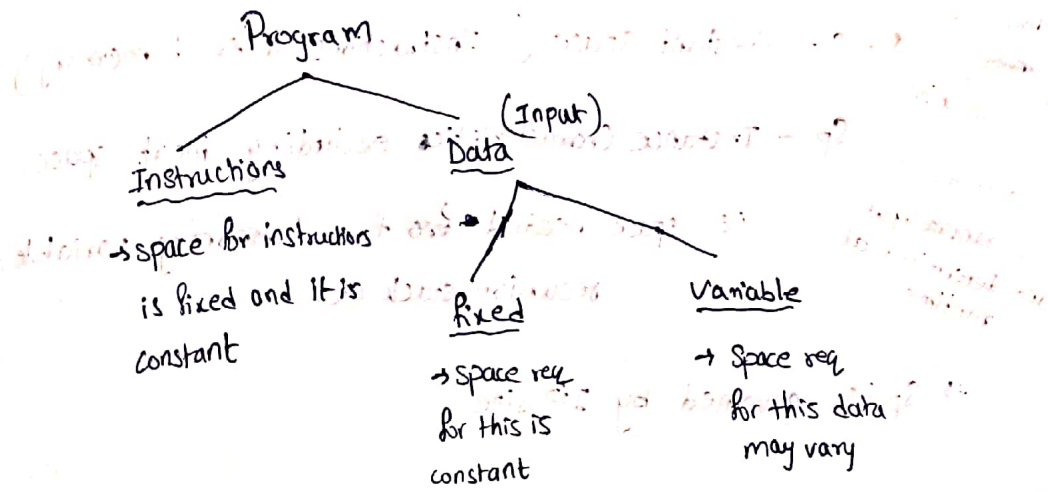 Program
(Input)
Data
Instructions
→ space for instructions
is fixed and it is
constant
fixed
→ space req
for this is
constant
Variable
→ Space req
for this data
may vary